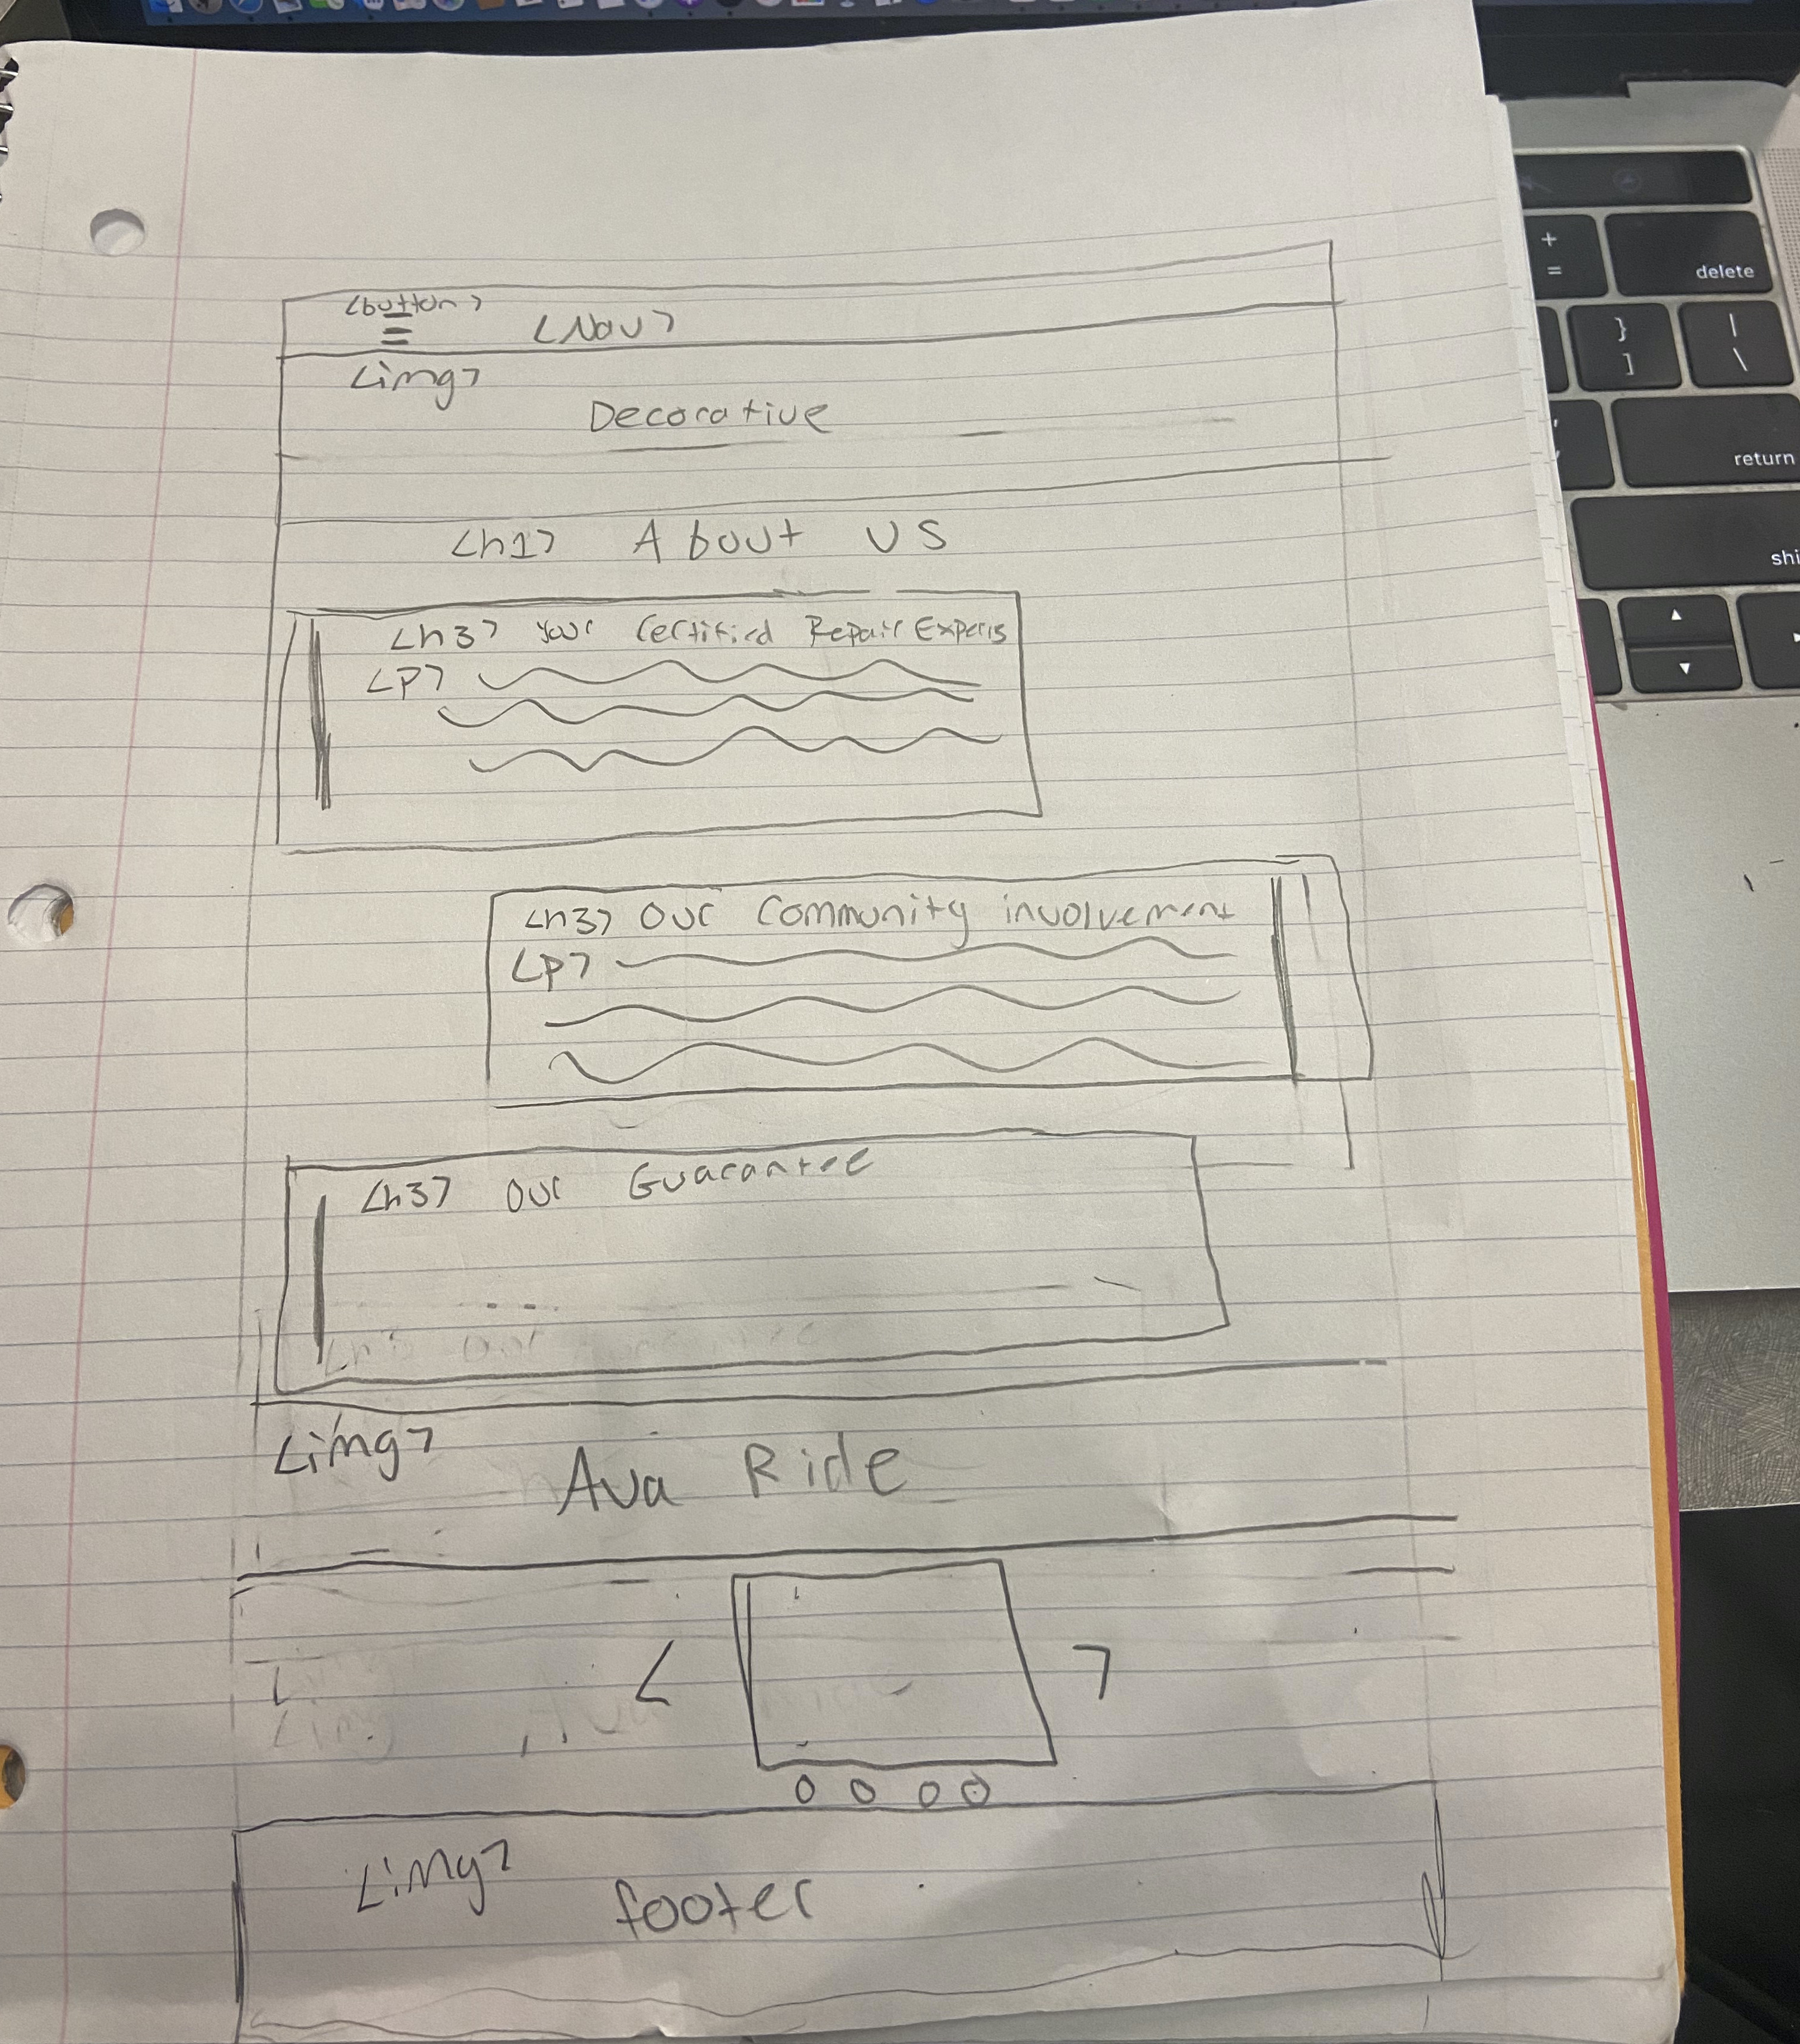 <button>
<Nav>
<img>
Decorative
<h1> About US
<h3> Your Certified Repair Experts
<p>
<h3> Our Community involvement
<p>
<h3> Our Guarantee
<img>
Ava Ride
< >
<img>
footer
+
=
delete
}
]
|
\
return
shi